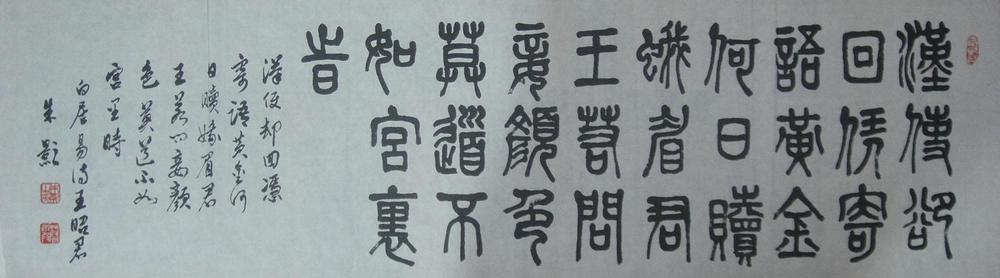 漢使卻
回憑寄
語黃金
何日贖
蛾眉君
王若問
妾顏色
莫道不
如宮裏
時
漢使却回憑
寄語黃金何
日贖蛾眉君
王若问妾顏
色莫道不如
宮里時
白居易诗王昭君
朱影